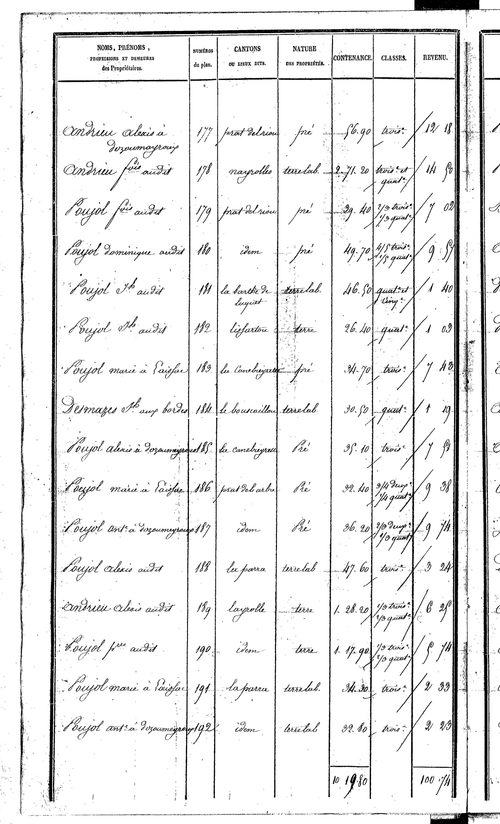 NOMS, PRÉNOMS, PROFESSIONS ET DEMEURES des Propriétaires. NUMÉROS du plan. CANTONS OU LIEUX DITS. NATURE DES PROPRIÉTÉS. CONTENANCE. CLASSES. REVENU.
andrieu alexis à dozoumayroux 177 prat del riou pré 56.90 trois.e 12 18
andrieu fois audit 178 nayrolles terre lab. 2.71.20 trois.e et quat.e 14 58
Poujol fois audit 179 prat del riou pré 29.40 2/3 trois.e 1/3 quat.e 7 02
Poujol dominique audit 180 idem pré 49.70 quat.e 9 57
Poujol Jh audit 181 la barthe de terre lab. 46.50 quat.e et cinq.e 1 40
Poujol Jh. audit 182 terre 26.40 quat.e 1 03
Poujol marie à 183 les canebeyrou pré 34.70 trois.e 7 43
Desmazes Jh aux bordes 184 le bouscaillou terre lab 30.50 quat.e 1 19
Poujol alexis à dozoumayroux 185 les canebeyrou Pré 35.10 trois.e 7 53
Poujol marie à 186 prat del arbre Pré 32.40 3/4 deux.e 1/4 quat.e 9 38
Poujol ant.e à dozoumayroux 187 idem Pré 36.20 2/3 deux.e 1/3 quat.e 9 74
Poujol alexis audit 188 les parra terre lab 47.60 trois.e 3 24
andrieu alexis audit 189 layrolle terre 1.28.20 1/3 trois.e 2/3 quat.e 6 25
Poujol pierre audit 190 idem terre 1.17.90 1/3 trois.e 2/3 quat.e 5 74
Poujol marie à 191 la parra terre lab. 34.30 trois.e 2 33
Poujol ant.e à dozoumayroux 192 idem terre lab 32.80 trois.e 2 23
10 19 80 100.74